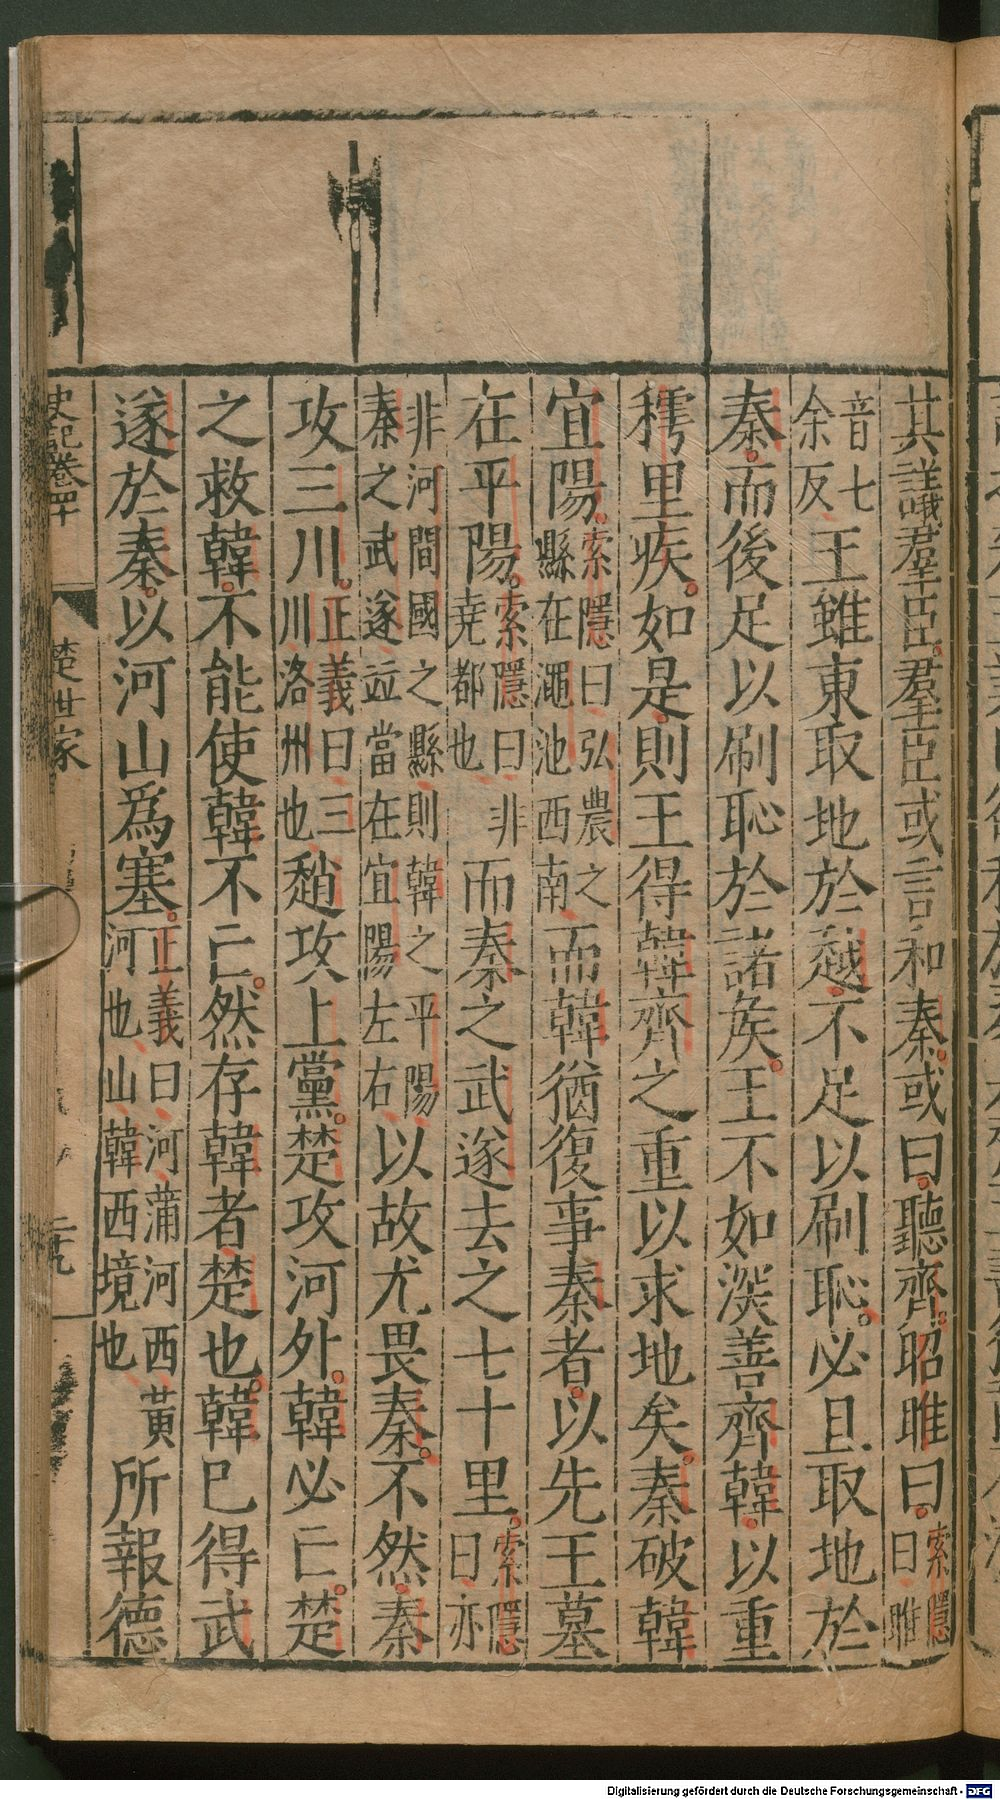 其議羣臣羣臣或言和秦或曰聽齊昭雎曰索隱曰雎
音七余反王雖東取地於越不足以刷恥必且取地於
秦而後足以刷恥於諸矦王不如深善齊韓以重
樗里疾如是則王得韓齊之重以求地矣秦破韓
宜陽索隱曰弘農之縣在澠池西南而韓猶復事秦者以先王墓
在平陽索隱曰非堯都也而秦之武遂去之七十里索隱曰亦
非河間國之縣則韓之平陽秦之武遂竝當在宜陽左右以故尤畏秦不然秦
攻三川正義曰三川洛州也趙攻上黨楚攻河外韓必亡楚
之救韓不能使韓不亡然存韓者楚也韓已得武
遂於秦以河山爲塞正義曰河蒲河西黃河也山韓西境也所報德
史記卷四十 楚世家 二十九
Digitalisierung gefördert durch die Deutsche Forschungsgemeinschaft - DFG